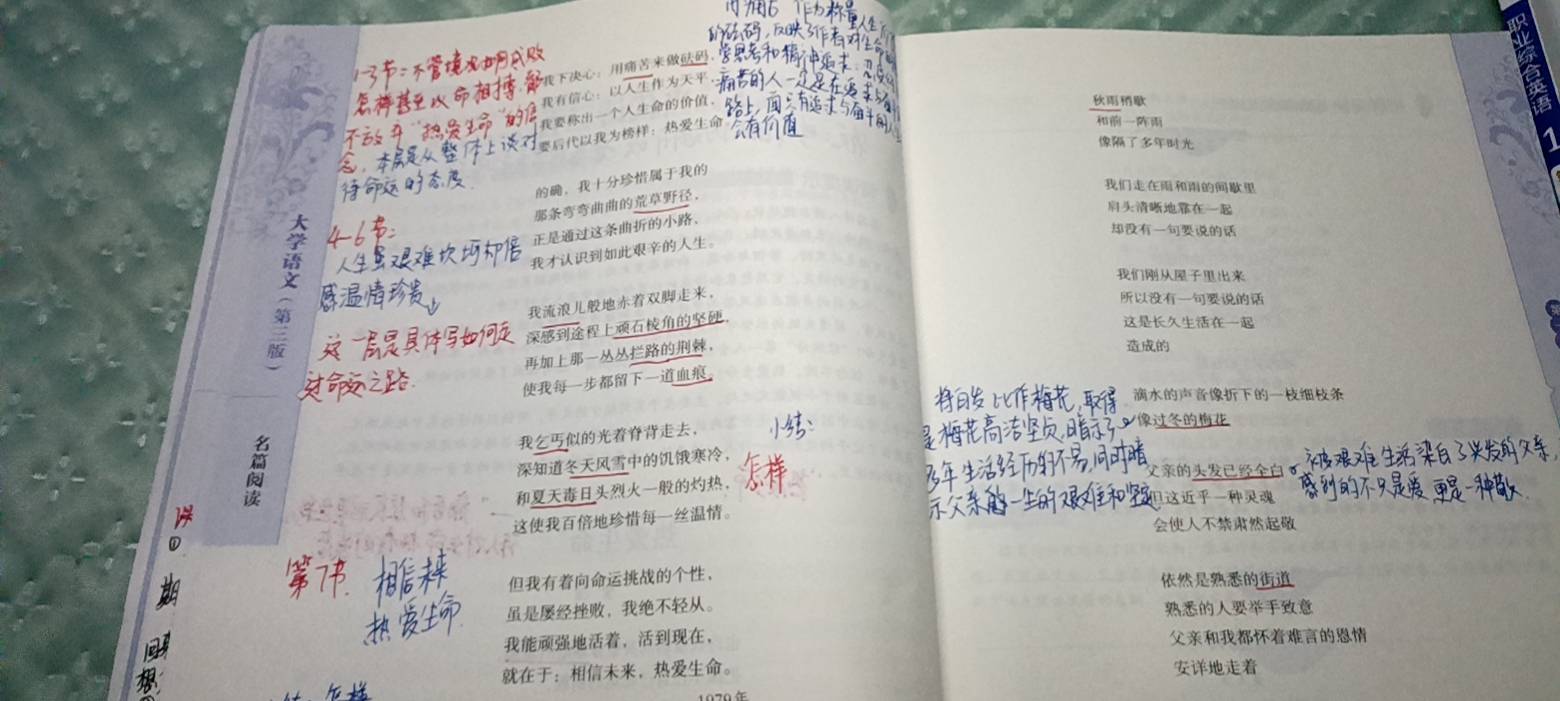 1-3节：不管境况如何成败
怎样甚至以命相搏，都
不放弃“热爱生命”的信
念，本层是从整体上谈对
待命运的态度.
4-6节：
人生虽艰难坎坷却倍
感温情珍贵
这一层是具体写如何走
过命运之路.
第7节. 相信未来
热爱生命
大学语文（第三版）
名篇阅读
期
回
想
作为称量人生
的砝码，反映了作者对生命的
思考和精神追求：
痛苦的人一定是在追求与
路上，而只有追求与奋斗的人生
会有价值
我下决心：用痛苦来做砝码，
我有信心：以人生作为天平，
我要称出一个人生命的价值，
要后代以我为榜样：热爱生命
的确，我十分珍惜属于我的
那条弯弯曲曲的荒草野径，
正是通过这条曲折的小路，
我才认识到如此艰辛的人生。
我流浪儿般地赤着双脚走来，
深感到途程上顽石棱角的坚硬，
再加上那一丛丛拦路的荆棘，
使我每一步都留下一道血痕。
我乞丐似的光着脊背走去，
深知道冬天风雪中的饥饿寒冷，
和夏天毒日头烈火一般的灼热，
这使我百倍地珍惜每一丝温情。
小结：
怎样
但我有着向命运挑战的个性，
虽是屡经挫败，我绝不轻从。
我能顽强地活着，活到现在，
就在于：相信未来，热爱生命。
1979年
怎样
秋雨稍歇
和前一阵雨
像隔了多年时光
我们走在雨和雨的间歇里
肩头清晰地靠在一起
却没有一句要说的话
我们刚从屋子里出来
所以没有一句要说的话
这是长久生活在一起
造成的
滴水的声音像折下的一枝细枝条
像过冬的梅花
父亲的头发已经全白
但这近乎一种灵魂
会使人不禁肃然起敬
依然是熟悉的街道
熟悉的人要举手致意
父亲和我都怀着难言的恩情
安详地走着
将白发比作梅花，取得
是梅花高洁坚贞，暗示了
多年生活经历的不易，同时暗
示父亲的一生的艰难和坚
被艰难生活染白了头发的父亲，
感到的不只是爱更是一种敬
职业综合英语
1